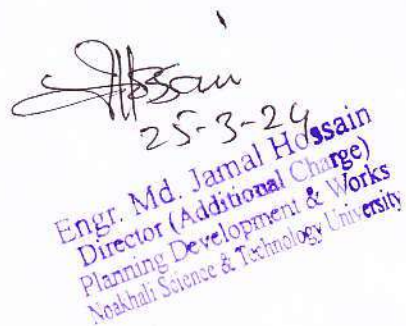 Hossain
25-3-24
Engr. Md. Jamal Hossain
Director (Additional Charge)
Planning Development & Works
Noakhali Science & Technology University